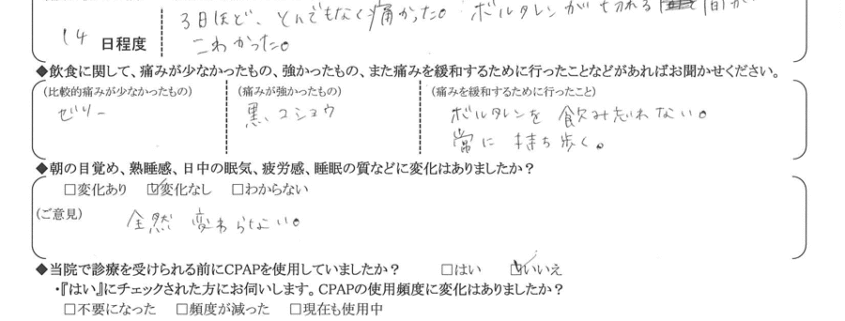 3日ほど、とんでもなく痛かった。ボルタレンが切れる 間が
14 日程度 こわかった。
◆飲食に関して、痛みが少なかったもの、強かったもの、また痛みを緩和するために行ったことなどがあればお聞かせください。
(比較的痛みが少なかったもの) (痛みが強かったもの) (痛みを緩和するために行ったこと)
ゼリー 黒コショウ ボルタレンを飲み忘れない。
常に持ち歩く。
◆朝の目覚め、熟睡感、日中の眠気、疲労感、睡眠の質などに変化はありましたか?
□変化あり ☑変化なし □わからない
(ご意見) 全然変わらない。
◆当院で診療を受けられる前にCPAPを使用していましたか? □はい ☑いいえ
・『はい』にチェックされた方にお伺いします。CPAPの使用頻度に変化はありましたか?
□不要になった □頻度が減った □現在も使用中